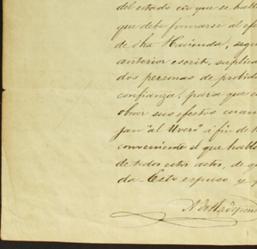 del estado en que se halla
que debe formarse al ef
de dha Hacienda, segun
anterior escrit, suplica
dos personas de probid
confianza, para que
obrar sus efectos
jan "al Uvero" a fin de
conveniente el que halla
de todos estos actos, de q
da Esto espuso y